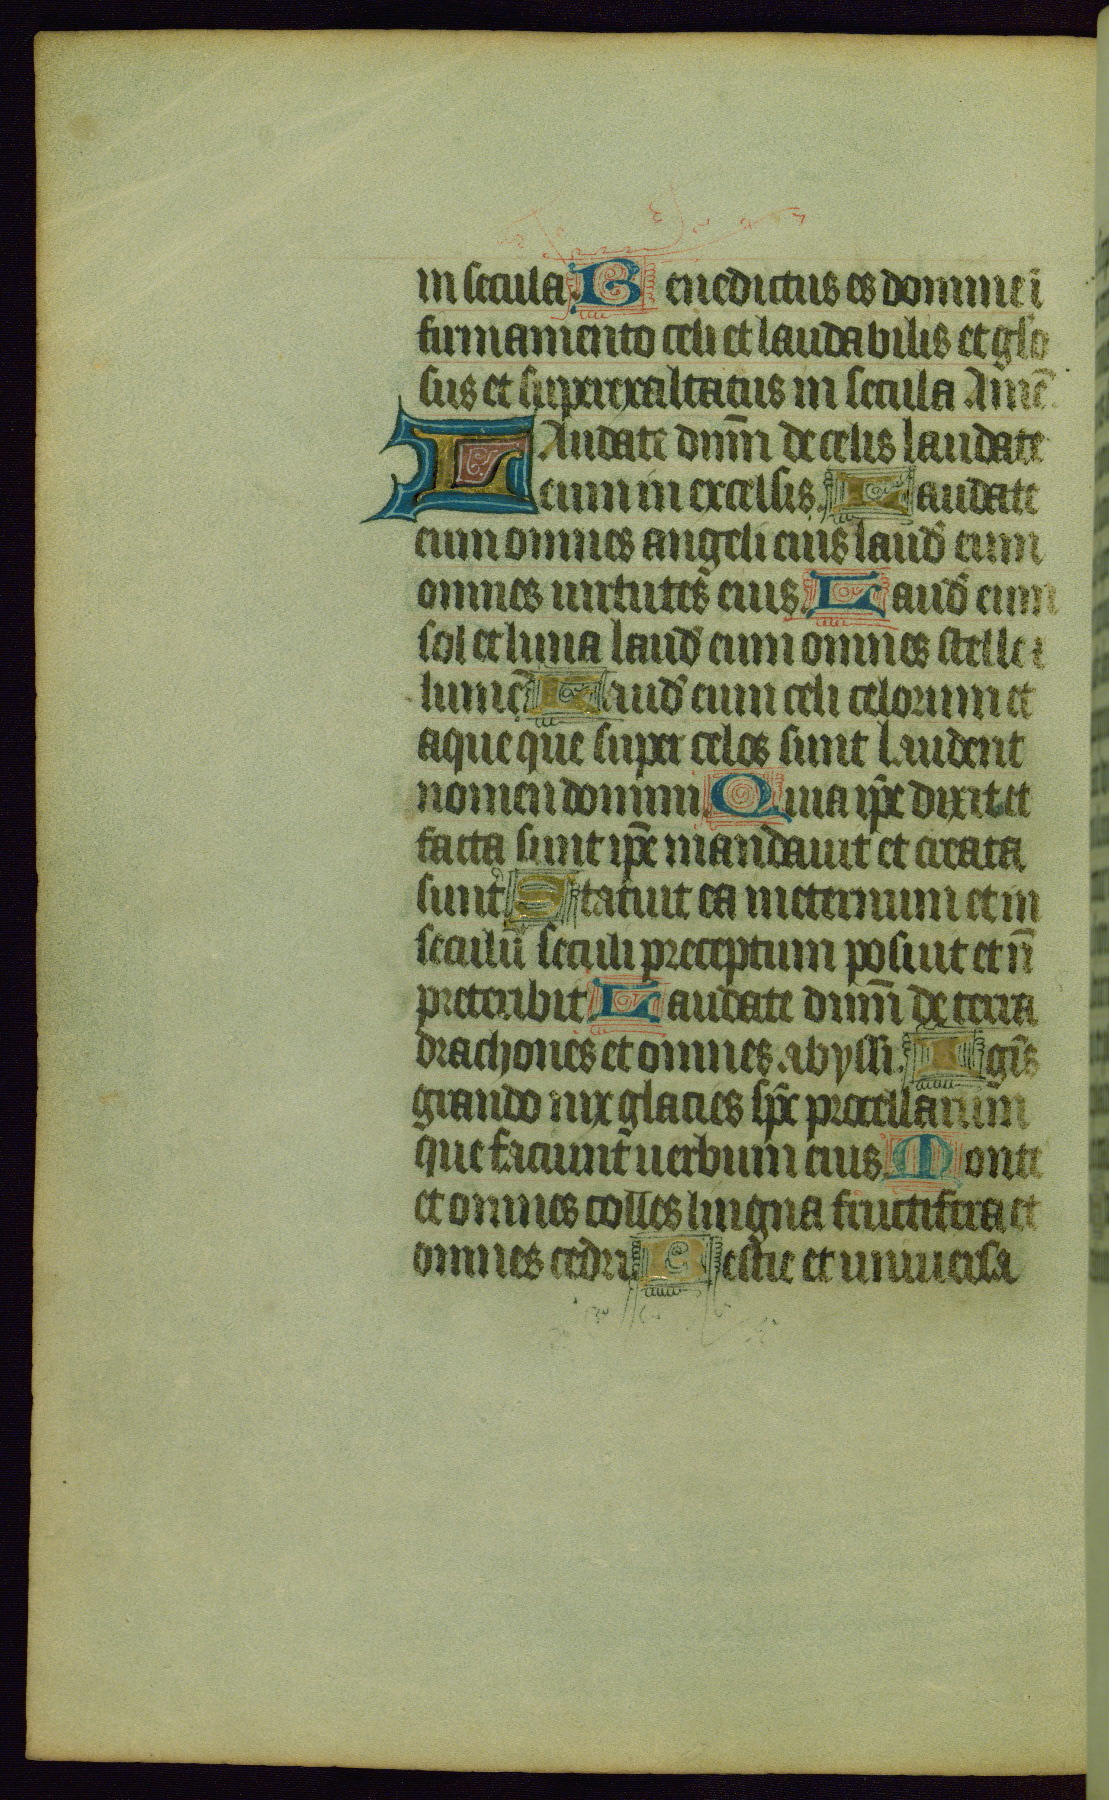 in secula Benedictus es domine ī
firmamento celi et laudabilis et glo
sus et superexaltatus in secula Amē
LAudate dnm̄ de celis laudate
eum in excelsis. Laudate
eum omnes angeli eius laud' eum
omnes uirtutes eius. Laud' eum
sol et luna laud' eum omnes stelle i
lumē Laud' eum celi celorum et
aque que super celos sunt Laudent
nomen domini Quia ip̄e dixit et
facta sunt ip̄e mandauit et creata
sunt Statuit ea ineternum et in
seculū seculi preceptum posuit et n̄
preteribit Laudate dnm̄ de terra
drachones et omnes abyssi. Ignis
grando nix glacies sp̄c procellarum
que faciunt uerbum eius. Monte
et omnes colles lingna fructifera et
omnes cedri Bestie et uniuersa